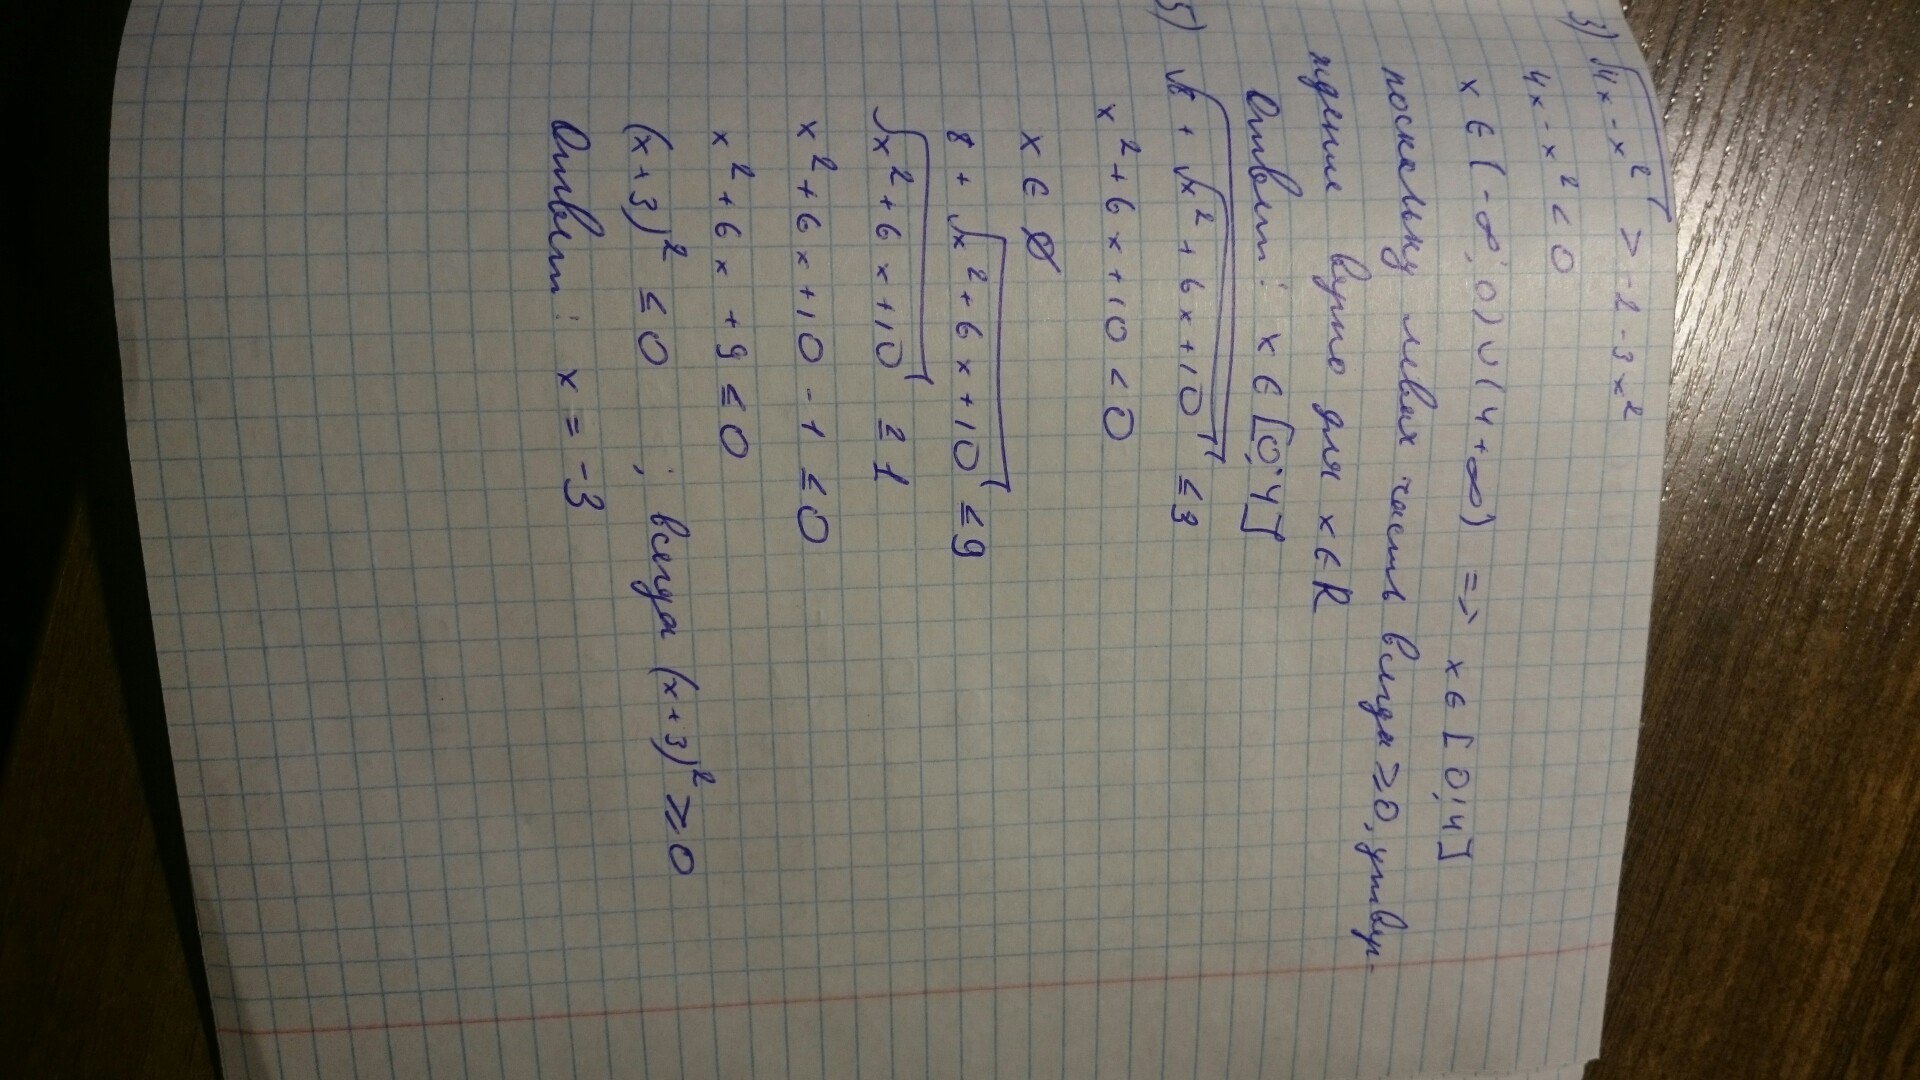 3) √4x-x² > -2-3x²
4x-x² < 0
x ∈ (-∞; 0) ∪ (4 +∞) => x ∈ [0; 4]
поскольку левая часть всегда ≥ 0, утвер-
ждение верно для x ∈ R
Ответ: x ∈ [0; 4]
5) √8 + √x² + 6x + 10 ≤ 3
x² + 6x + 10 < 0
x ∈ ∅
8 + √x² + 6x + 10 ≤ 9
√x² + 6x + 10 ≤ 1
x² + 6x + 10 - 1 ≤ 0
x² + 6x + 9 ≤ 0
(x+3)² ≤ 0 ; всегда (x+3)² ≥ 0
Ответ: x = -3